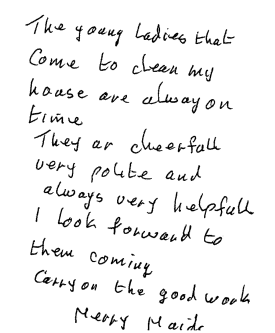 The young Ladies that
Come to clean my
house are alway on
time
They ar cheerfull
very polite and
always very helpfull
I look forward to
them coming
Carry on the good work
Merry Maids